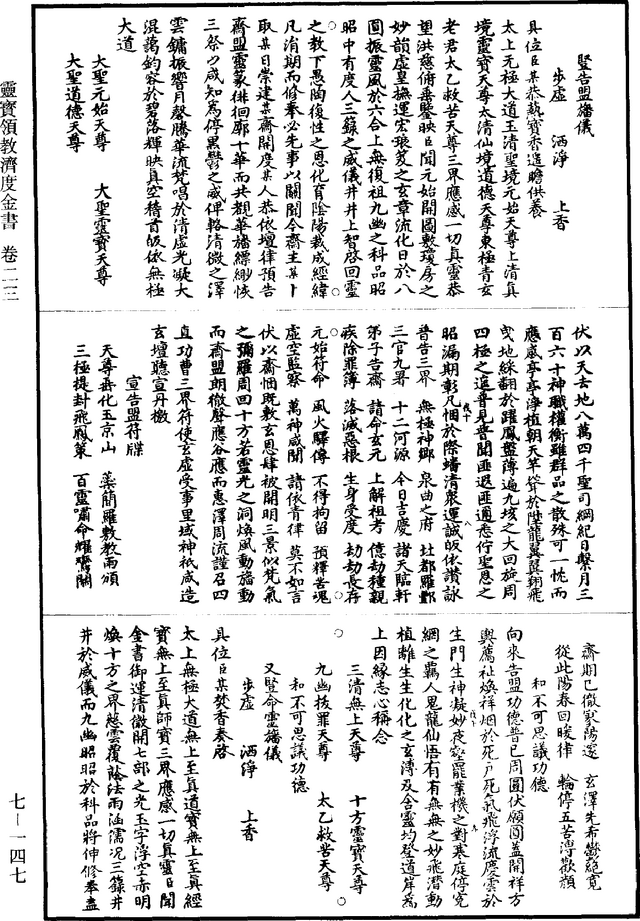 靈寶領教濟度金書 卷二三
七—一四七
豎告盟旛儀
步虛 洒淨 上香
具位臣某恭爇寶香遙瞻供養
太上元極大道玉清聖境元始天尊上清真
境靈寶天尊太清仙境道德天尊東極青玄
老君太乙救苦天尊三界應感一切真靈恭
望洪慈俯垂鑒映臣聞元始開圖敷瓊房之
妙韻虛皇撫運宏琅笈之玄章流化日於八
圓振靈風於六合上無復祖九幽之科品昭
昭中有度人三籙之威儀井井上智啓回靈
之教下愚陶復性之恩化育陰陽裁成經緯
凡消期而修奉必先事以關聞今齋主某卜
取某日崇建某齋開度某人恭依壇律預告
齋盟靈篆徘徊廓十華而共覩華旛縹緲恢
三祭以咸知為停黑鬱之威俾輅清微之澤
雲鏞振響月磬騰華流梵唱於清虛光凝大
混藹鈞容於碧落輝映真空稽首皈依無極
大道
大聖元始天尊 大聖靈寶天尊
大聖道德天尊
伏以天去地八萬四千聖司綱紀日繫月三
百六十神職權衡雖群品之散殊可一忱而
應感亭亭淨植朝天竿聳於陛龍翼翼翔飛
曳地綵翻於躍鳳盤薄遍九垓之大回旋周
四極之遥普見普聞匪遐匪邇悉佇聖恩之
昭漏期彰凡悃於際蟠清衆運誠皈依讚詠
普告三界 無極神鄉 泉曲之府 北都羅酆
三官九署 十二河源 今日吉慶 諸天臨軒
弟子告齋 請命玄元 上解祖考 億劫種親
疾除罪簿 落滅惡根 生身受度 劫劫長存
元始符命 風火驛傳 不得拘留 預釋苦魂
虛空監察 萬神咸聞 請依青律 莫不如言
伏以齋悃既敷玄恩肆被開明三景似梵氣
之彌羅周回十方若靈光之洞煥風動旛動
而齋盟朗徹聲應谷應而惠澤周流謹召四
直功曹三界符使玄虛受事里域神祇咸造
玄壇聽宣丹檄
宣告盟符牒
天尊垂化玉京山 蘂簡羅敷教雨頒
三極提封飛鳳篆 百靈嘯命耀鸞關
齋期已徹冢陽還 玄澤先希鬱絕寬
從此陽春回暖律 輪停五苦溥歡顏
和不可思議功德
向來告盟功德普已周圓伏願圓蓋開祥方
輿薦祉煥祥烟於死戶死氣飛浮流慶雲於
生門生神凝妙夜壑罷業機之對寒庭停冤
綱之羈人鬼龍仙悟有有無無之妙飛潛動
植離生生化化之玄溥及含靈均登道岸為
上因緣志心稱念
三清無上天尊 十方靈寶天尊
九幽拔罪天尊 太乙救苦天尊
和不可思議功德
又豎命靈旛儀
步虛 洒淨 上香
具位臣某焚香奏啓
太上無極大道無上至真道寶無上至真經
寶無上至真師寶三界應感一切真靈臣聞
金書御運清微開七部之光玉字浮空赤明
煥十方之界慈雲覆蔭法雨涵濡況三籙井
井於威儀而九幽昭昭於科品將伸修奉盍